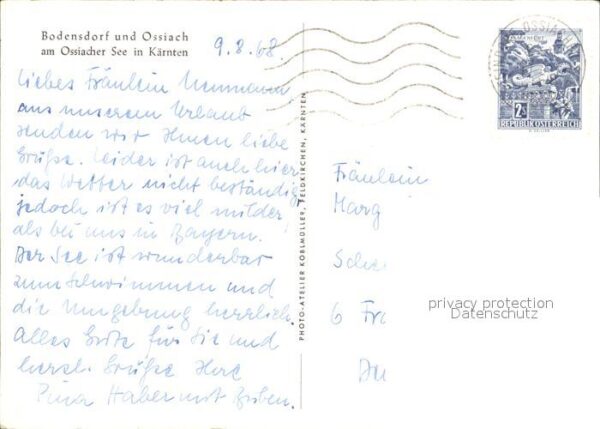 Bodensdorf und Ossiach
am Ossiacher See in Kärnten
9.8.68
Liebes Fräulein Neumann,
aus unserem Urlaub
senden wir Ihnen liebe
Grüße. Leider ist auch hier
das Wetter nicht beständig,
jedoch ist es viel milder
als bei uns in Bayern.
Der See ist wunderbar
zum Schwimmen und
die Umgebung herrlich.
Alles Gute für Sie und
herzl. Grüße Ihre
Haber mit
PHOTO-ATELIER KOBLMÜLLER, FELDKIRCHEN, KÄRNTEN
OSSIACH
2
REPUBLIK ÖSTERREICH
Fräulein
Marg
Sche
6 Fra
privacy protection
Datenschutz